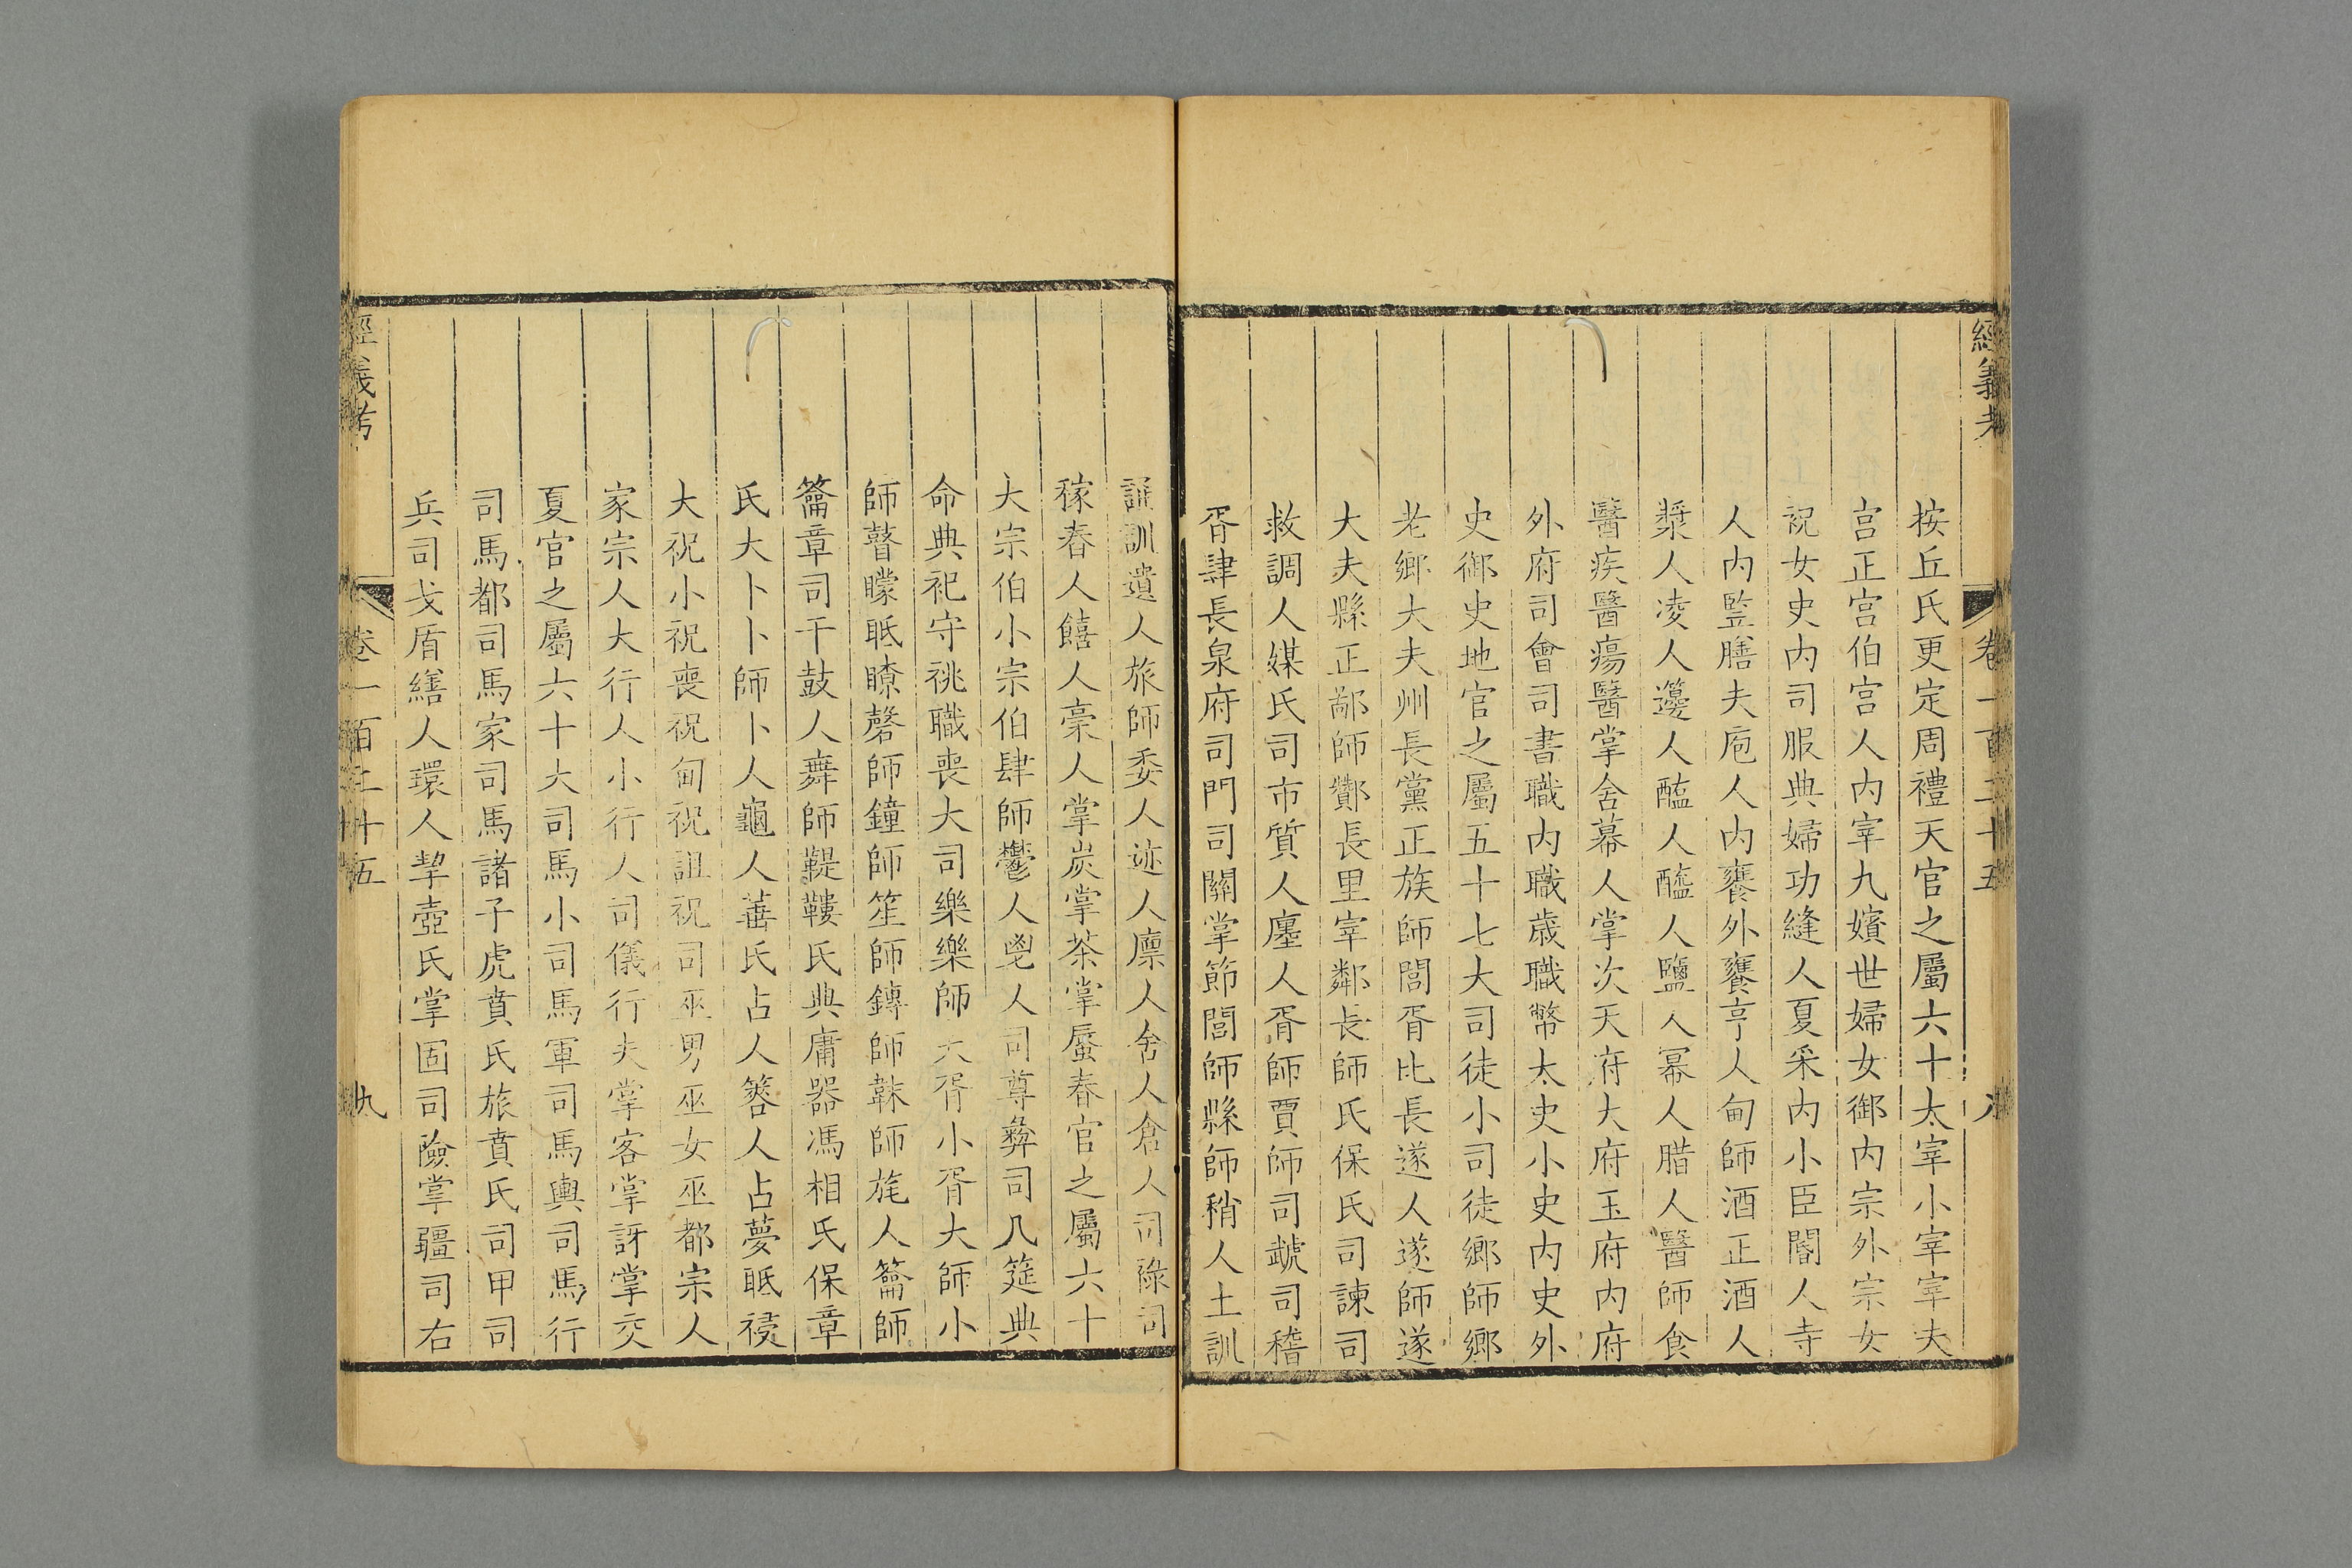 經義考 卷一百二十五 八
按丘氏更定周禮天官之屬六十太宰小宰宰夫
宫正宫伯宫人内宰九嬪世婦女御内宗外宗女
祝女史内司服典婦功縫人夏采内小臣閽人寺
人内監膳夫庖人内饔外饔亨人甸師酒正酒人
漿人凌人籩人醢人醯人鹽人冪人腊人醫師食
醫疾醫瘍醫掌舍幕人掌次天府大府玉府内府
外府司會司書職内職歳職幣太史小史内史外
史御史地官之屬五十七大司徒小司徒鄉師鄉
老鄉大夫州長黨正族師閭胥比長遂人遂師遂
大夫縣正鄙師酇長里宰鄰長師氏保氏司諫司
救調人媒氏司市質人廛人胥師賈師司虣司稽
胥肆長泉府司門司關掌節閭師縣師稍人土訓
誦訓遺人旅師委人迹人廪人舍人倉人司祿司
稼舂人饎人稾人掌炭掌荼掌蜃春官之屬六十
大宗伯小宗伯肆師鬱人鬯人司尊彝司几筵典
命典祀守祧職喪大司樂樂師大胥小胥大師小
師瞽矇眡瞭磬師鐘師笙師鎛師韎師旄人籥師
籥章司干鼓人舞師鞮鞻氏典庸器馮相氏保章
氏大卜卜師卜人龜人菙氏占人簭人占夢眡祲
大祝小祝喪祝甸祝詛祝司巫男巫女巫都宗人
家宗人大行人小行人司儀行夫掌客掌訝掌交
夏官之屬六十大司馬小司馬軍司馬輿司馬行
司馬都司馬家司馬諸子虎賁氏旅賁氏司甲司
兵司戈盾繕人環人挈壺氏掌固司險掌疆司右
經義考 卷一百二十五 九